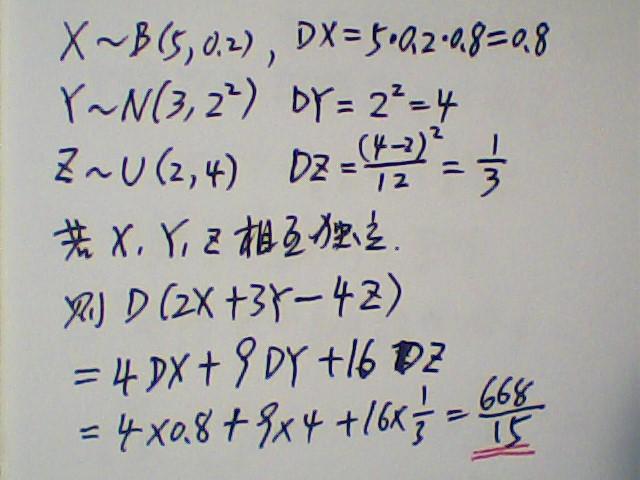 X~B(5, 0.2), DX=5·0.2·0.8=0.8
Y~N(3, 2²) DY=2²=4
Z~U(2,4) DZ=(4-2)²/12=1/3
若 X, Y, Z 相互独立.
则 D(2X+3Y-4Z)
=4DX+9DY+16DZ
=4×0.8+9×4+16×1/3=668/15